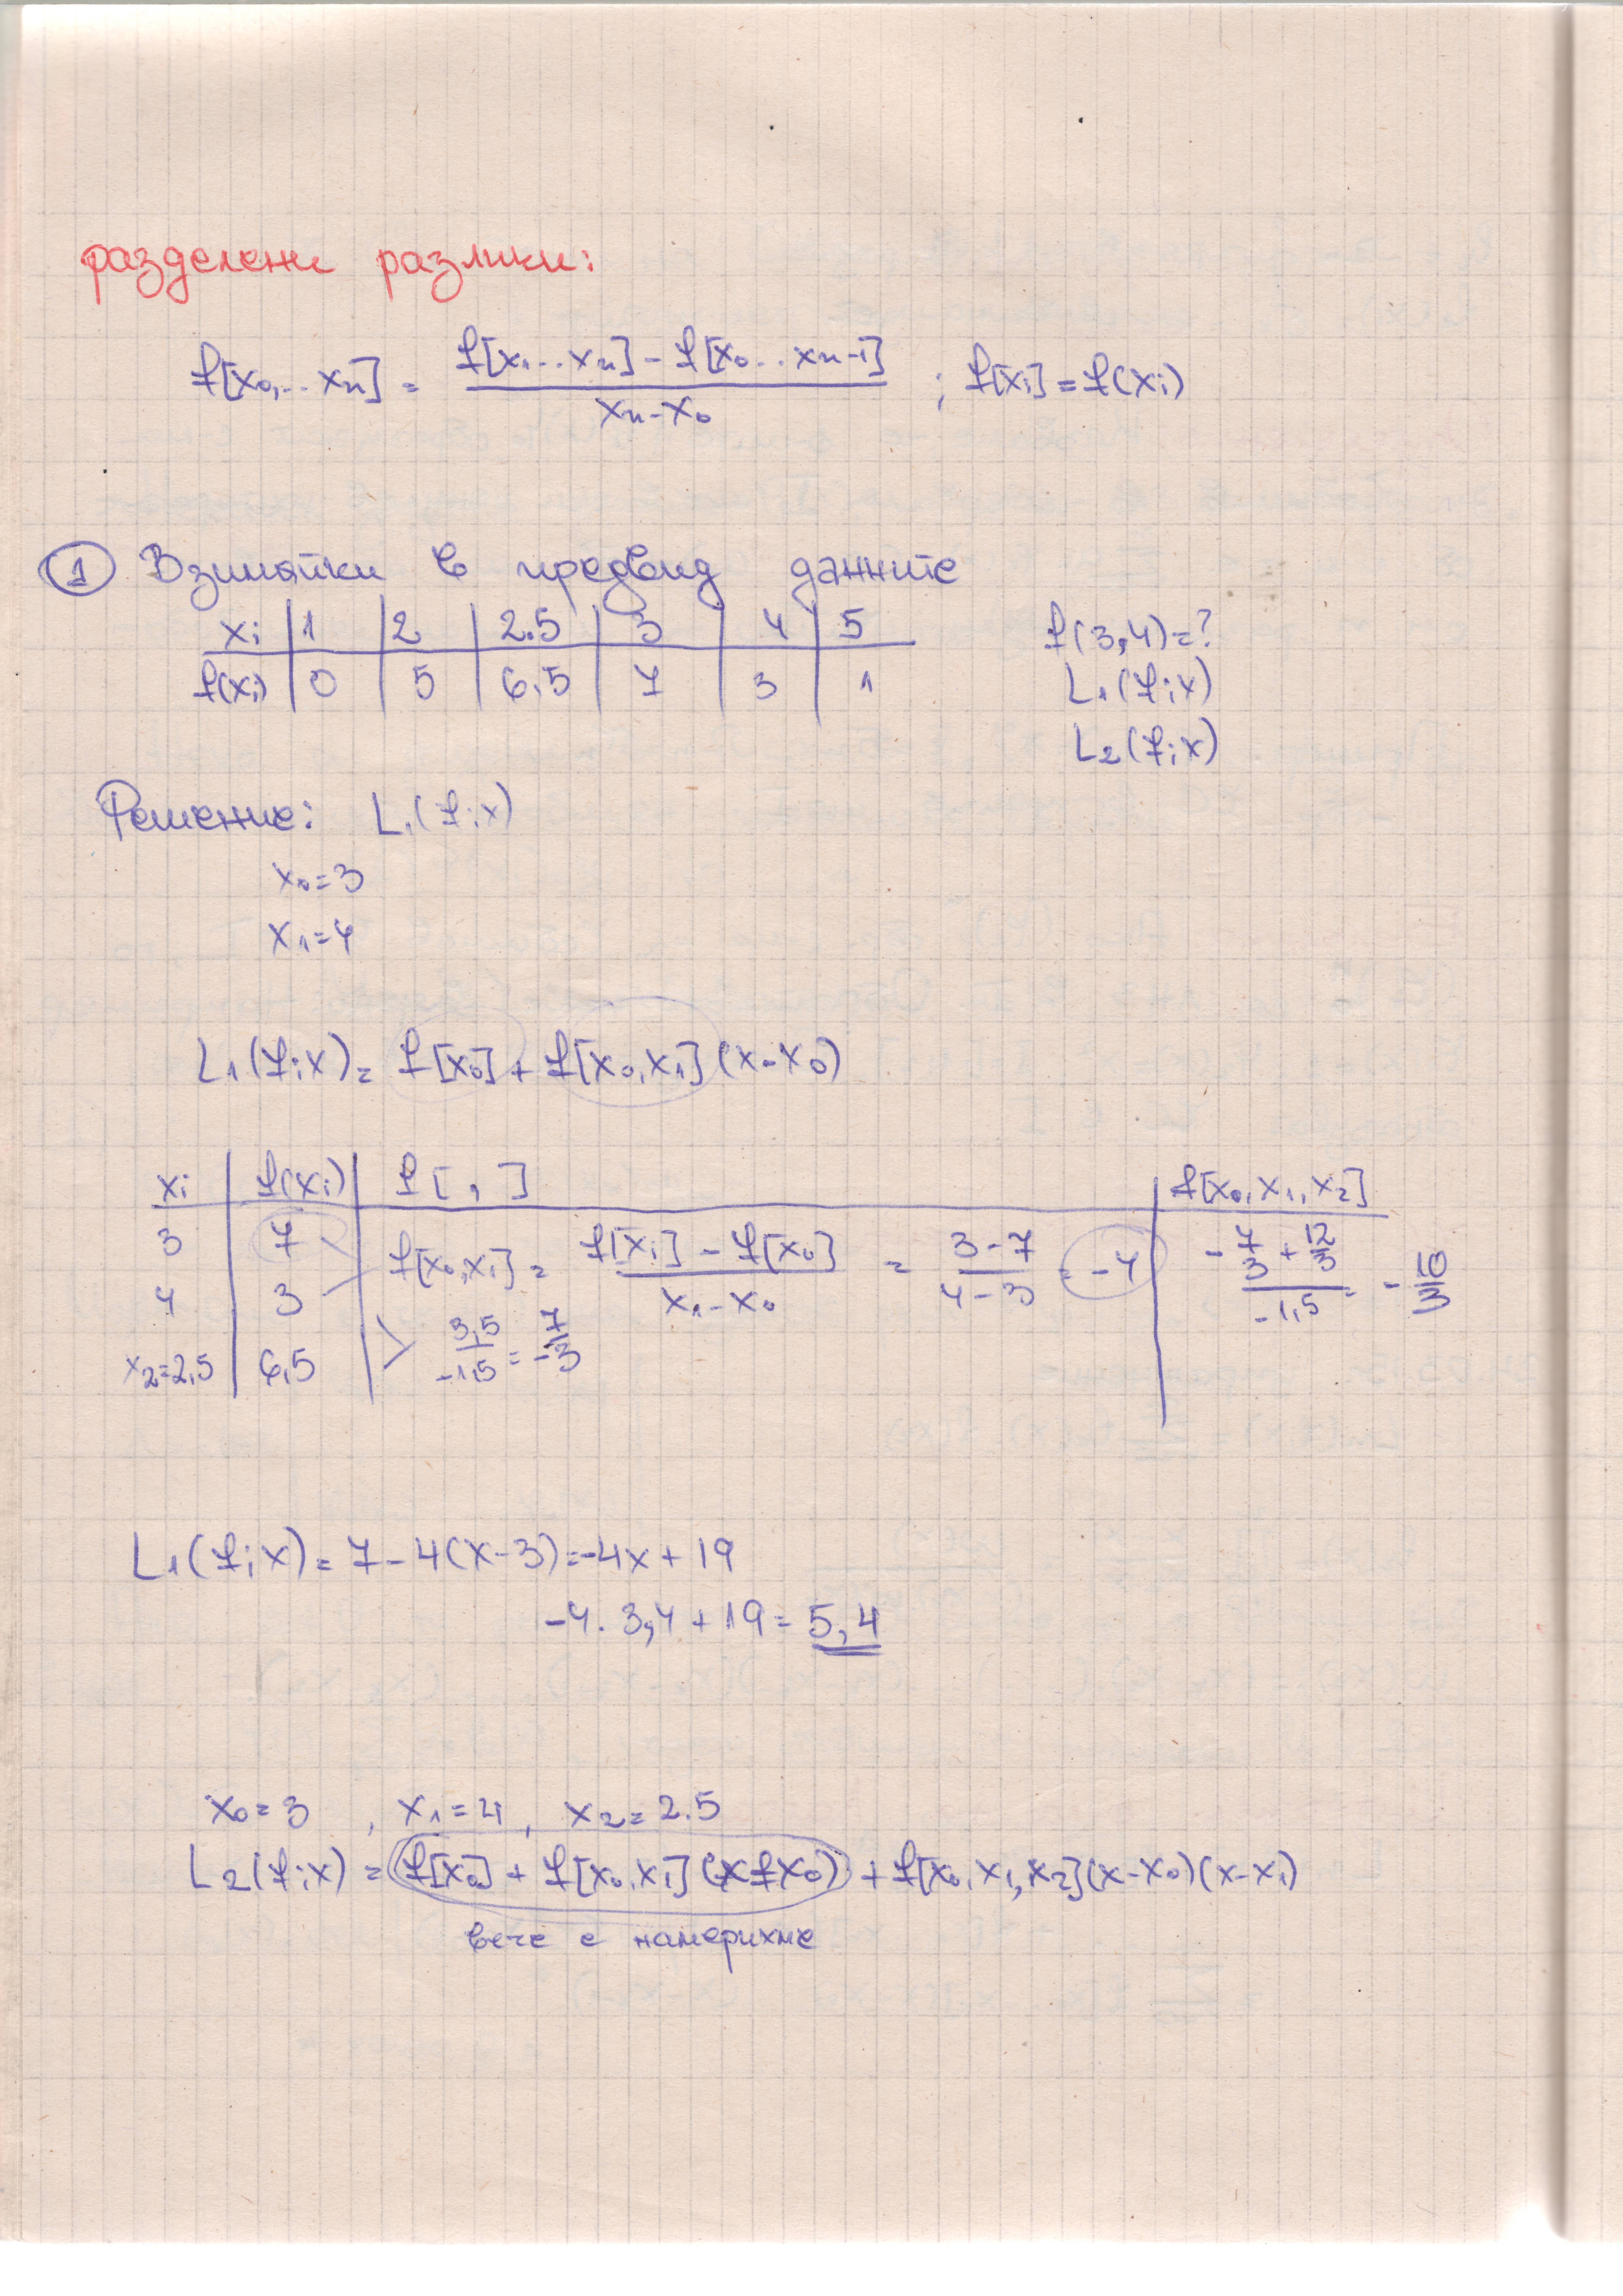 разделени разлики:
f[x₀,..xₙ] = (f[x₁...xₙ] - f[x₀...xₙ₋₁]) / (xₙ - x₀) ; f[xᵢ] = f(xᵢ)
① Взимайки в предвид данните
xᵢ | 1 | 2 | 2.5 | 3 | 4 | 5
f(xᵢ) | 0 | 5 | 6.5 | 7 | 3 | 1
f(3,4)=?
L₁(f;x)
L₂(f;x)
Решение: L₁(f;x)
x₀=3
x₁=4
L₁(f;x) = f[x₀] + f[x₀,x₁](x-x₀)
xᵢ | f(xᵢ) | f[ , ] | f[x₀,x₁,x₂]
3 | 7
f[x₀,x₁] = (f[x₁] - f[x₀]) / (x₁ - x₀) = (3-7)/(4-3) = -4 | (-7/3 + 12/3)/(-1,5) = -10/3
4 | 3
3,5/-1,5 = -7/3
x₂=2,5 | 6,5
L₁(f;x) = 7 - 4(x-3) = -4x + 19
-4. 3,4 + 19 = 5,4
x₀=3 , x₁=4 , x₂=2.5
L₂(f;x) = f[x₀] + f[x₀,x₁](x-x₀) + f[x₀,x₁,x₂](x-x₀)(x-x₁)
вече е намерихме